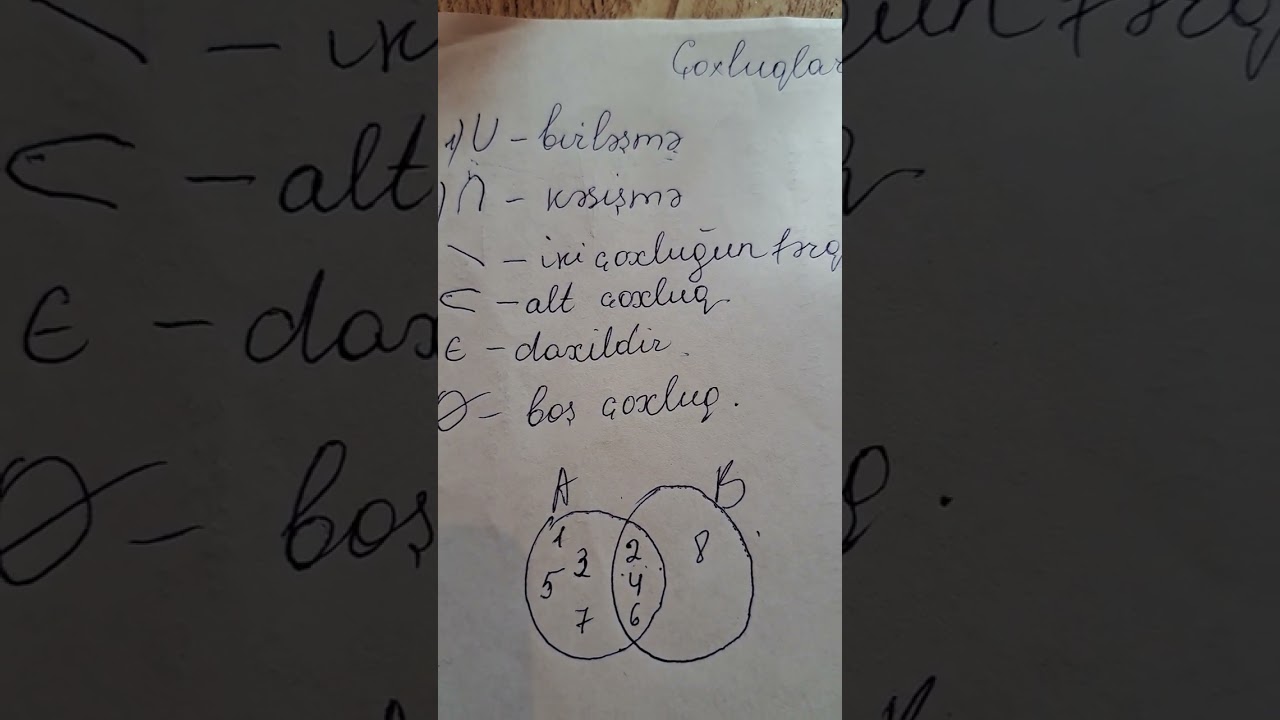 Çoxluqlar
1) U – birləşmə
) ∩ – kəsişmə
\ – iki çoxluğun fərq
⊂ – alt çoxluq.
∈ – daxildir.
Ø – boş çoxluq.
A B
1 3 5 7 2 4 6 8